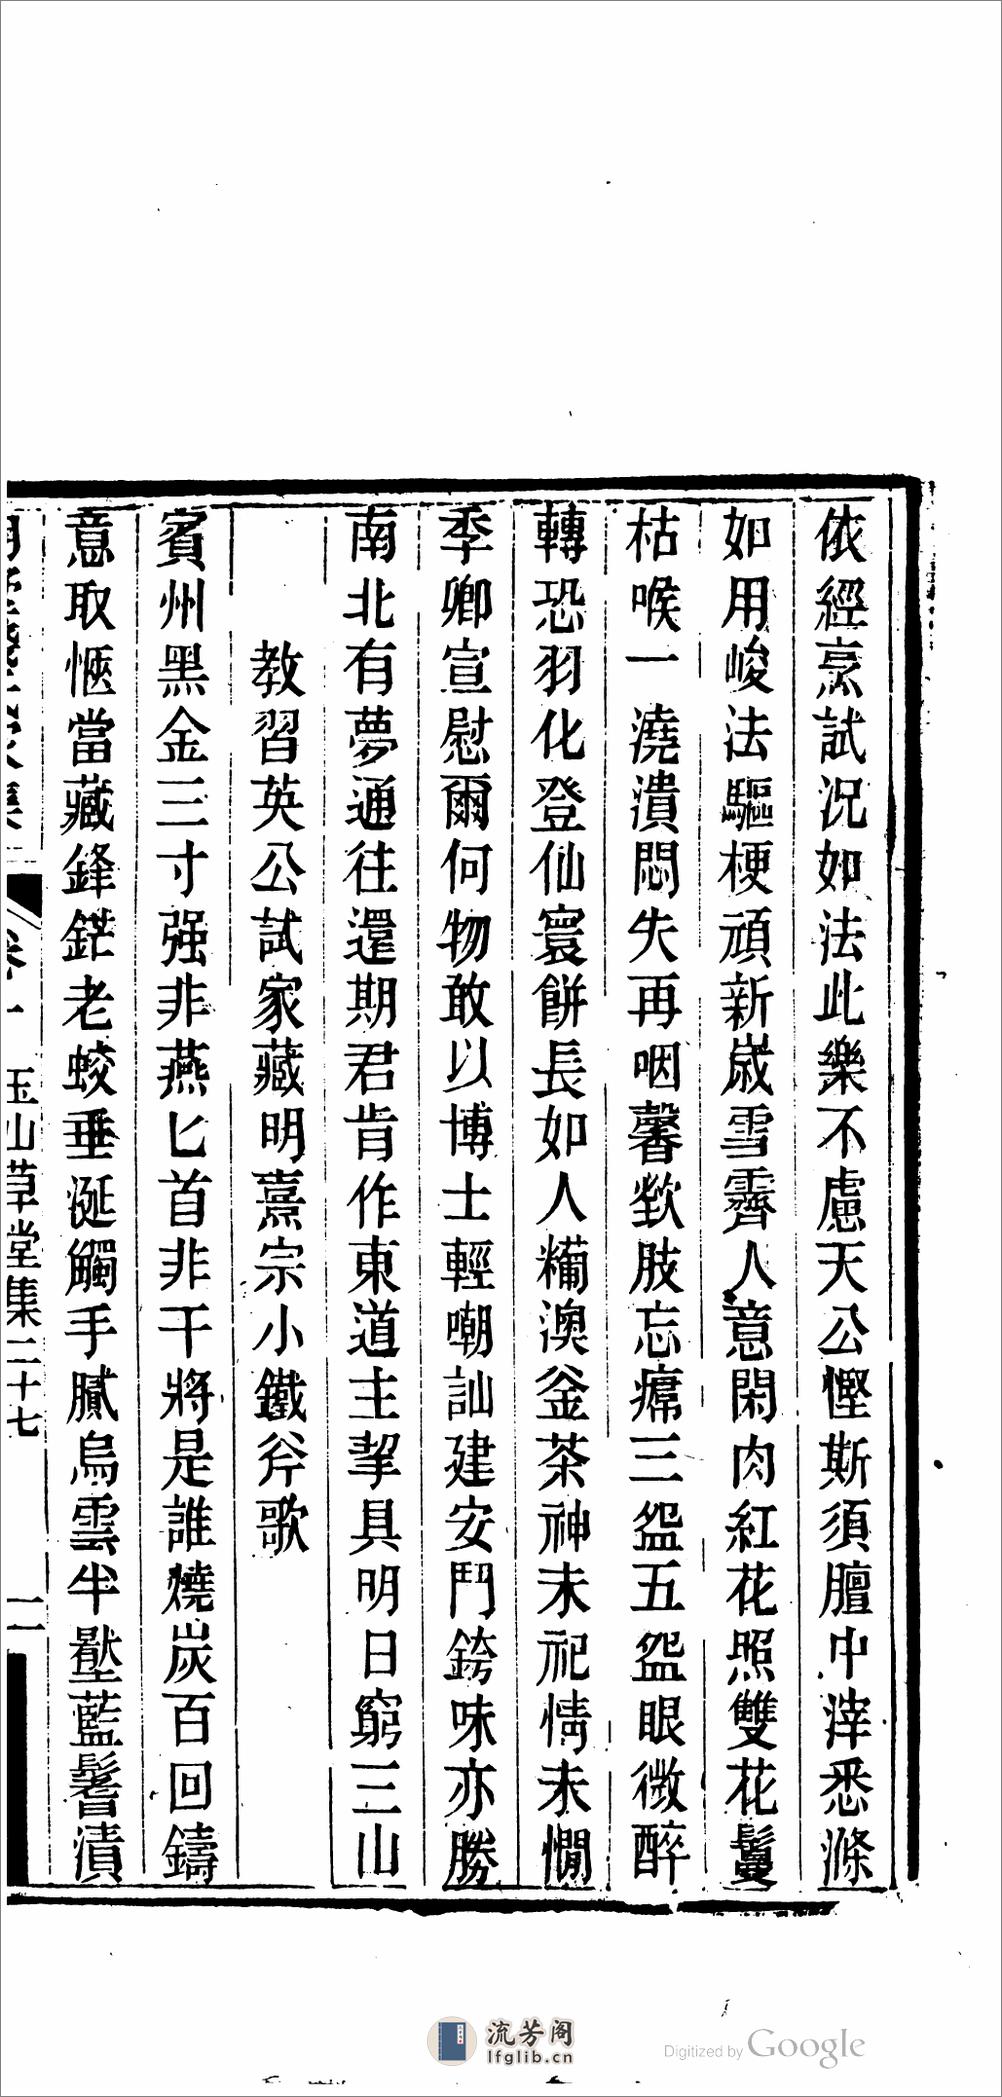 依經烹試況如法此樂不慮天公慳斯須膻中滓悉滌
如用峻法驅梗頑新嵗雪霽人意閑肉紅花照雙花鬘
枯喉一澆潰悶失再咽馨欻肢忘癯三盌五盌眼微醉
轉恐羽化登仙寰餅長如人糒澳釜茶神未祀情未憪
季卿宣慰爾何物敢以博士輕嘲訕建安鬥銙味亦勝
南北有夢通往還期君肯作東道主挈具明日窮三山
教習英公試家藏明熹宗小鐵斧歌
賓州黑金三寸强非燕匕首非干將是誰燒炭百回鑄
意取愜當藏鋒鋩老蛟垂涎觸手膩烏雲半壓藍鬐漬
卷一 玉山草堂集二十七 二
流芳阁
lfglib.cn
Digitized by Google